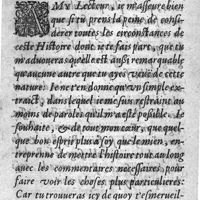 AMY Lecteur, ie m'asseure bien
que si tu prens la peine de consi-
derer toutes les circonstances de
ceste Histoire dont ie te fais part, que tu
m'aduoueras qu'elle est aussi remarquable
qu'aucune autre que tu ayes veuë de ceste
nature: Ie ne t'en donne qu'vn simple ex-
traict, dans lequel ie me suis restraint au
moins de paroles qu'il m'a esté possible. Ie
souhaite, & de tout mon cœur, que quel-
que bon esprit plus à soy que le mien, en-
treprenne de mettre l'histoire tout au long
auec les commentaires necessaires pour
faire voir les choses plus particulieres:
Car tu trouueras icy de quoy t'esmerueil-